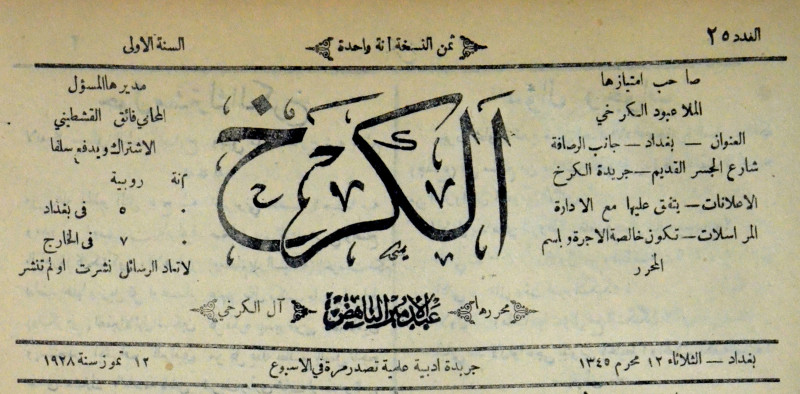 العدد ٢٥
ثمن النسخة آنة واحدة
السنة الاولى
صاحب امتيازها
الملا عبود الكرخي
العنوان — بغداد — جانب الرصافة
شارع الجسر القديم — جريدة الكرخ
الاعلانات — يتفق عليها مع الادارة
المراسلات — تكون خالصة الاجرة و اسم
المحرر
الكرخ
مديرها المسؤل
المحامي فائق القشطيني
الاشتراك ويدفع سلفا
آنة روبية
٠ ٥ فى بغداد
٠ ٧ فى الخارج
لاتعاد الرسائل نشرت او لم تنشر
محررها
عبد الامير الناهض
آل الكرخي
بغداد — الثلاثاء ١٢ محرم ١٣٤٥
جريدة ادبية علمية تصدر مرة في الاسبوع
١٢ تموز سنة ١٩٢٨